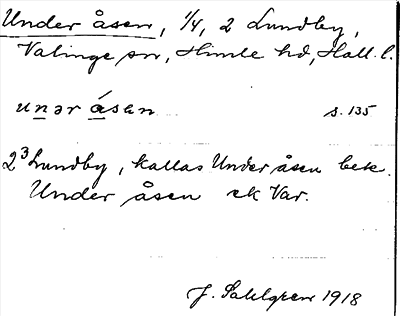 Under åsen, 1/4, 2 Lundby,
Valinge sn, Himle hd, Hall. l.
unər åsen s. 135
2³ Lundby, kallas Under åsen bek.
Under åsen ek Var.
J. Sahlgren 1918